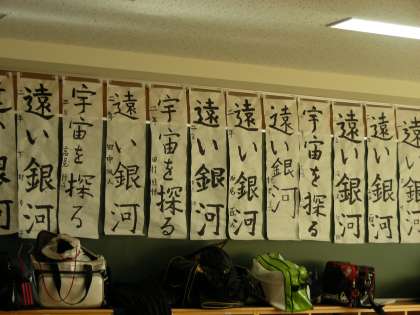 遠い銀河
遠い銀河
宇宙を探る
遠い銀河
宇宙を探る
遠い銀河
遠い銀河
遠い銀河
宇宙を探る
遠い銀河
遠い銀河
遠い銀河